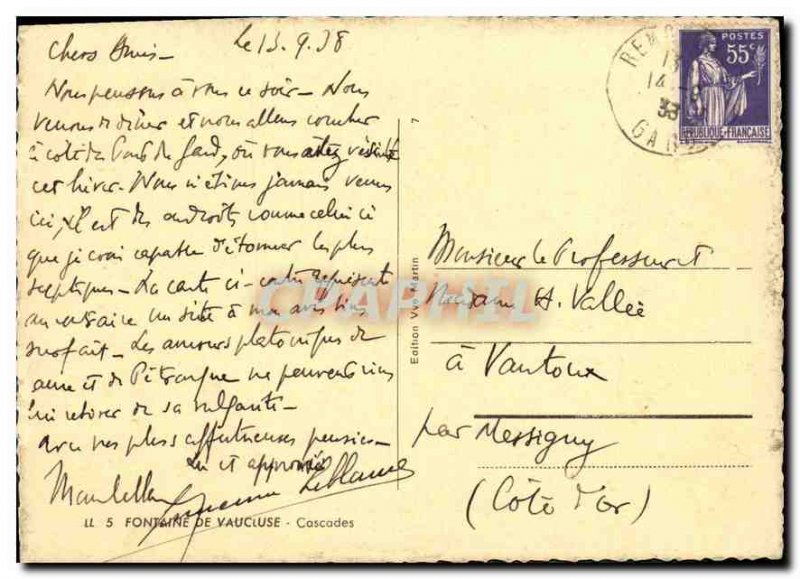 Le 13.9.38
Chers Amis -
Nous pensons à vous ce soir - Nous
venons de dîner et nous allons coucher
à côté du Pont du Gard, où vous
cet hiver. Nous n'étions jamais venus
ici, Il est des endroits comme celui ci
que je crois capable d'étonner les plus
sceptiques - La carte ci-contre représente
au contraire un site à mon avis bien
surfait - Les amours platoniques de
et de Pétrarque ne peuvent rien
lui retirer de sa vulgarité -
avec nos plus affectueuses pensées -
Lu et approuvé
Leblanc
LL 5 FONTAINE DE VAUCLUSE - Cascades
Edition Vve Martin
GARD
POSTES
55c
REPUBLIQUE-FRANÇAISE
Monsieur le Professeur et
Madame H. Vallée
à Vantoux
par Messigny
(Côte d'or)
CPAPHIL